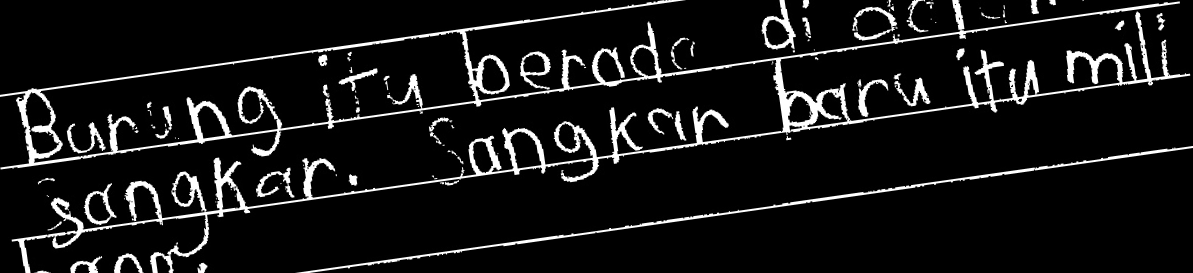 Burung itu berada di
sangkar. Sangkar baru itu mili